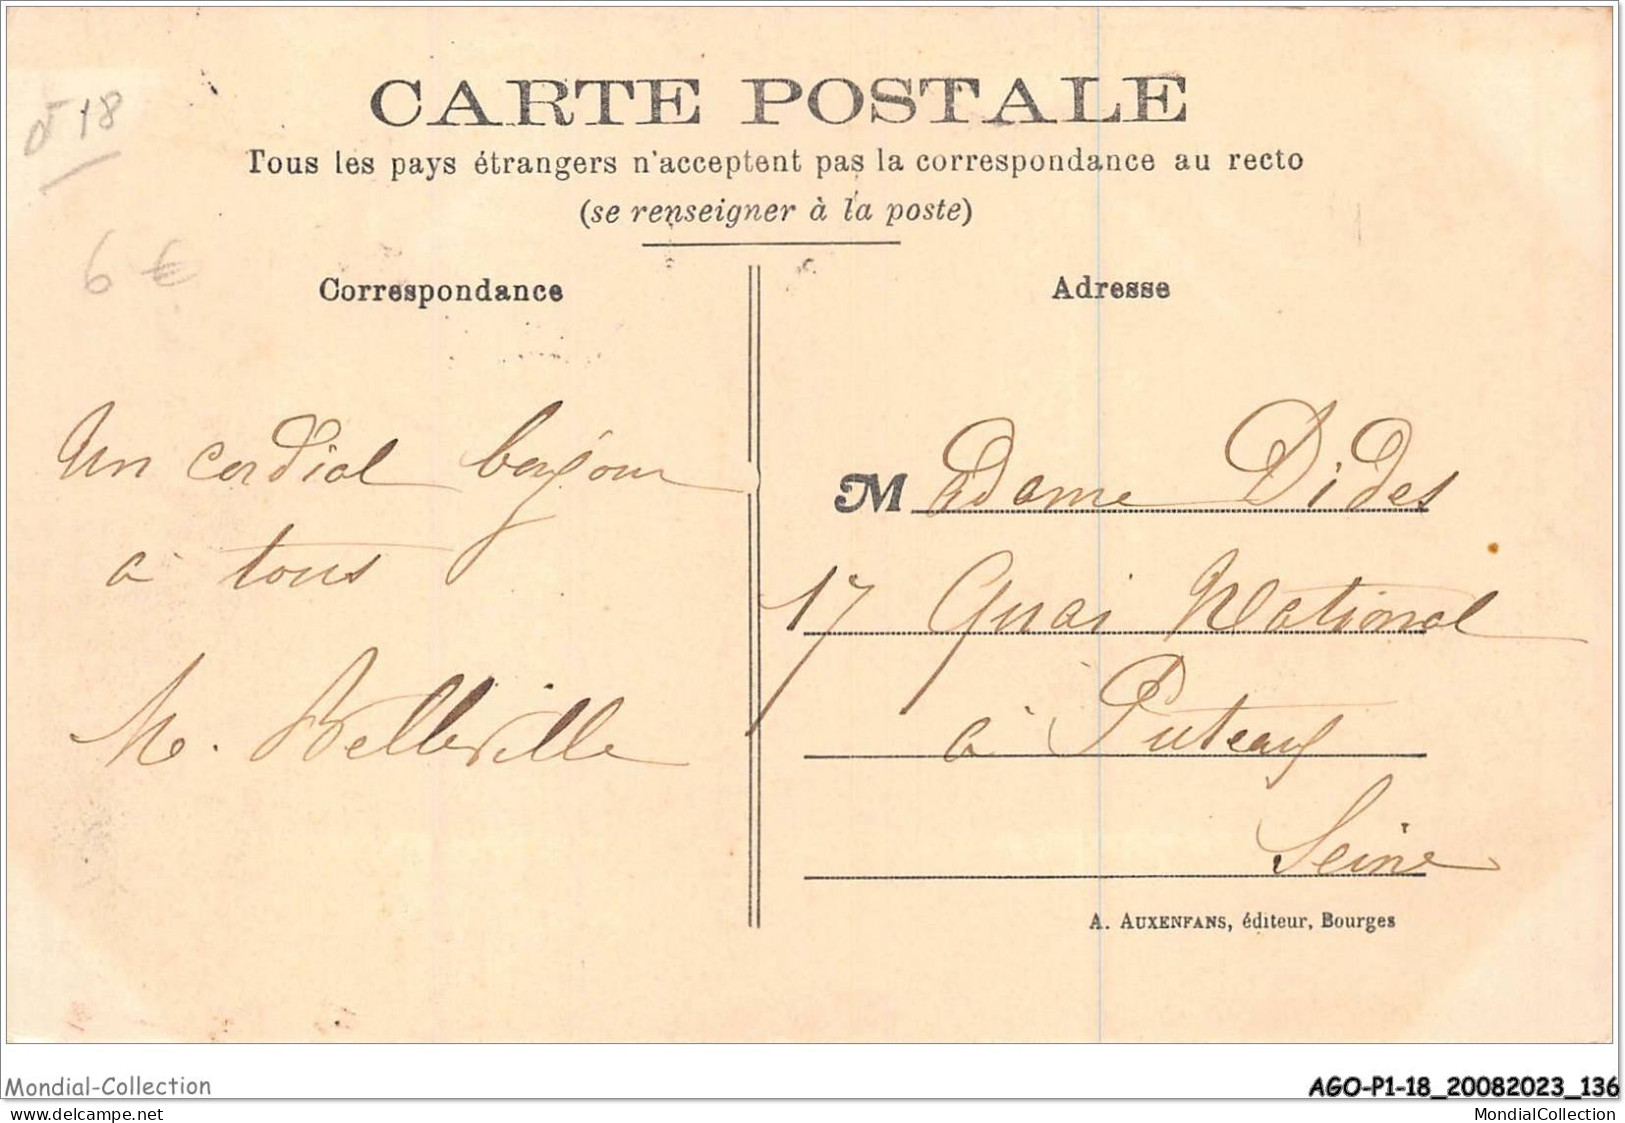 CARTE POSTALE
Tous les pays étrangers n'acceptent pas la correspondance au recto
(se renseigner à la poste)
18
6 €
Correspondance
Un cordial bonjour
à tous
M. Belleville
Adresse
Madame Didet
17 Quai National
à Puteaux
Seine
A. AUXENFANS, éditeur, Bourges
Mondial-Collection
AGO-P1-18_20082023_136
www.delcampe.net
MondialCollection